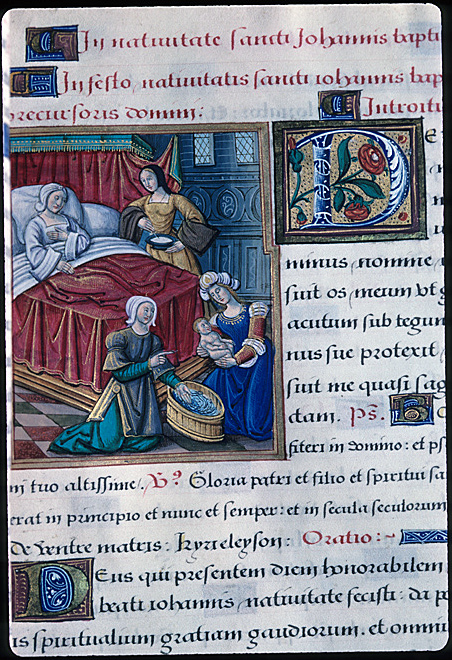 In natiuitate sancti Johannis bapti
In festo natiuitatis sancti iohannis bap
recursoris domini: Introitu
D E
minus nomine
suit os meum vt g
acutum sub tegum
nus sue protexit
suit me quasi sag
ctam. Ps. B o
fiteri in domino: et ps
ni tuo altissime. V? Gloria patri et filio et spiritui sa
erat in principio et nunc et semper: et in secula seculorum
de ventre matris. kyrieleyson: Oratio:~
DEus qui presentem diem honorabilem
beati iohannis natiuitate fecisti: da p
is spiritualium gratiam gaudiorum. et omniu